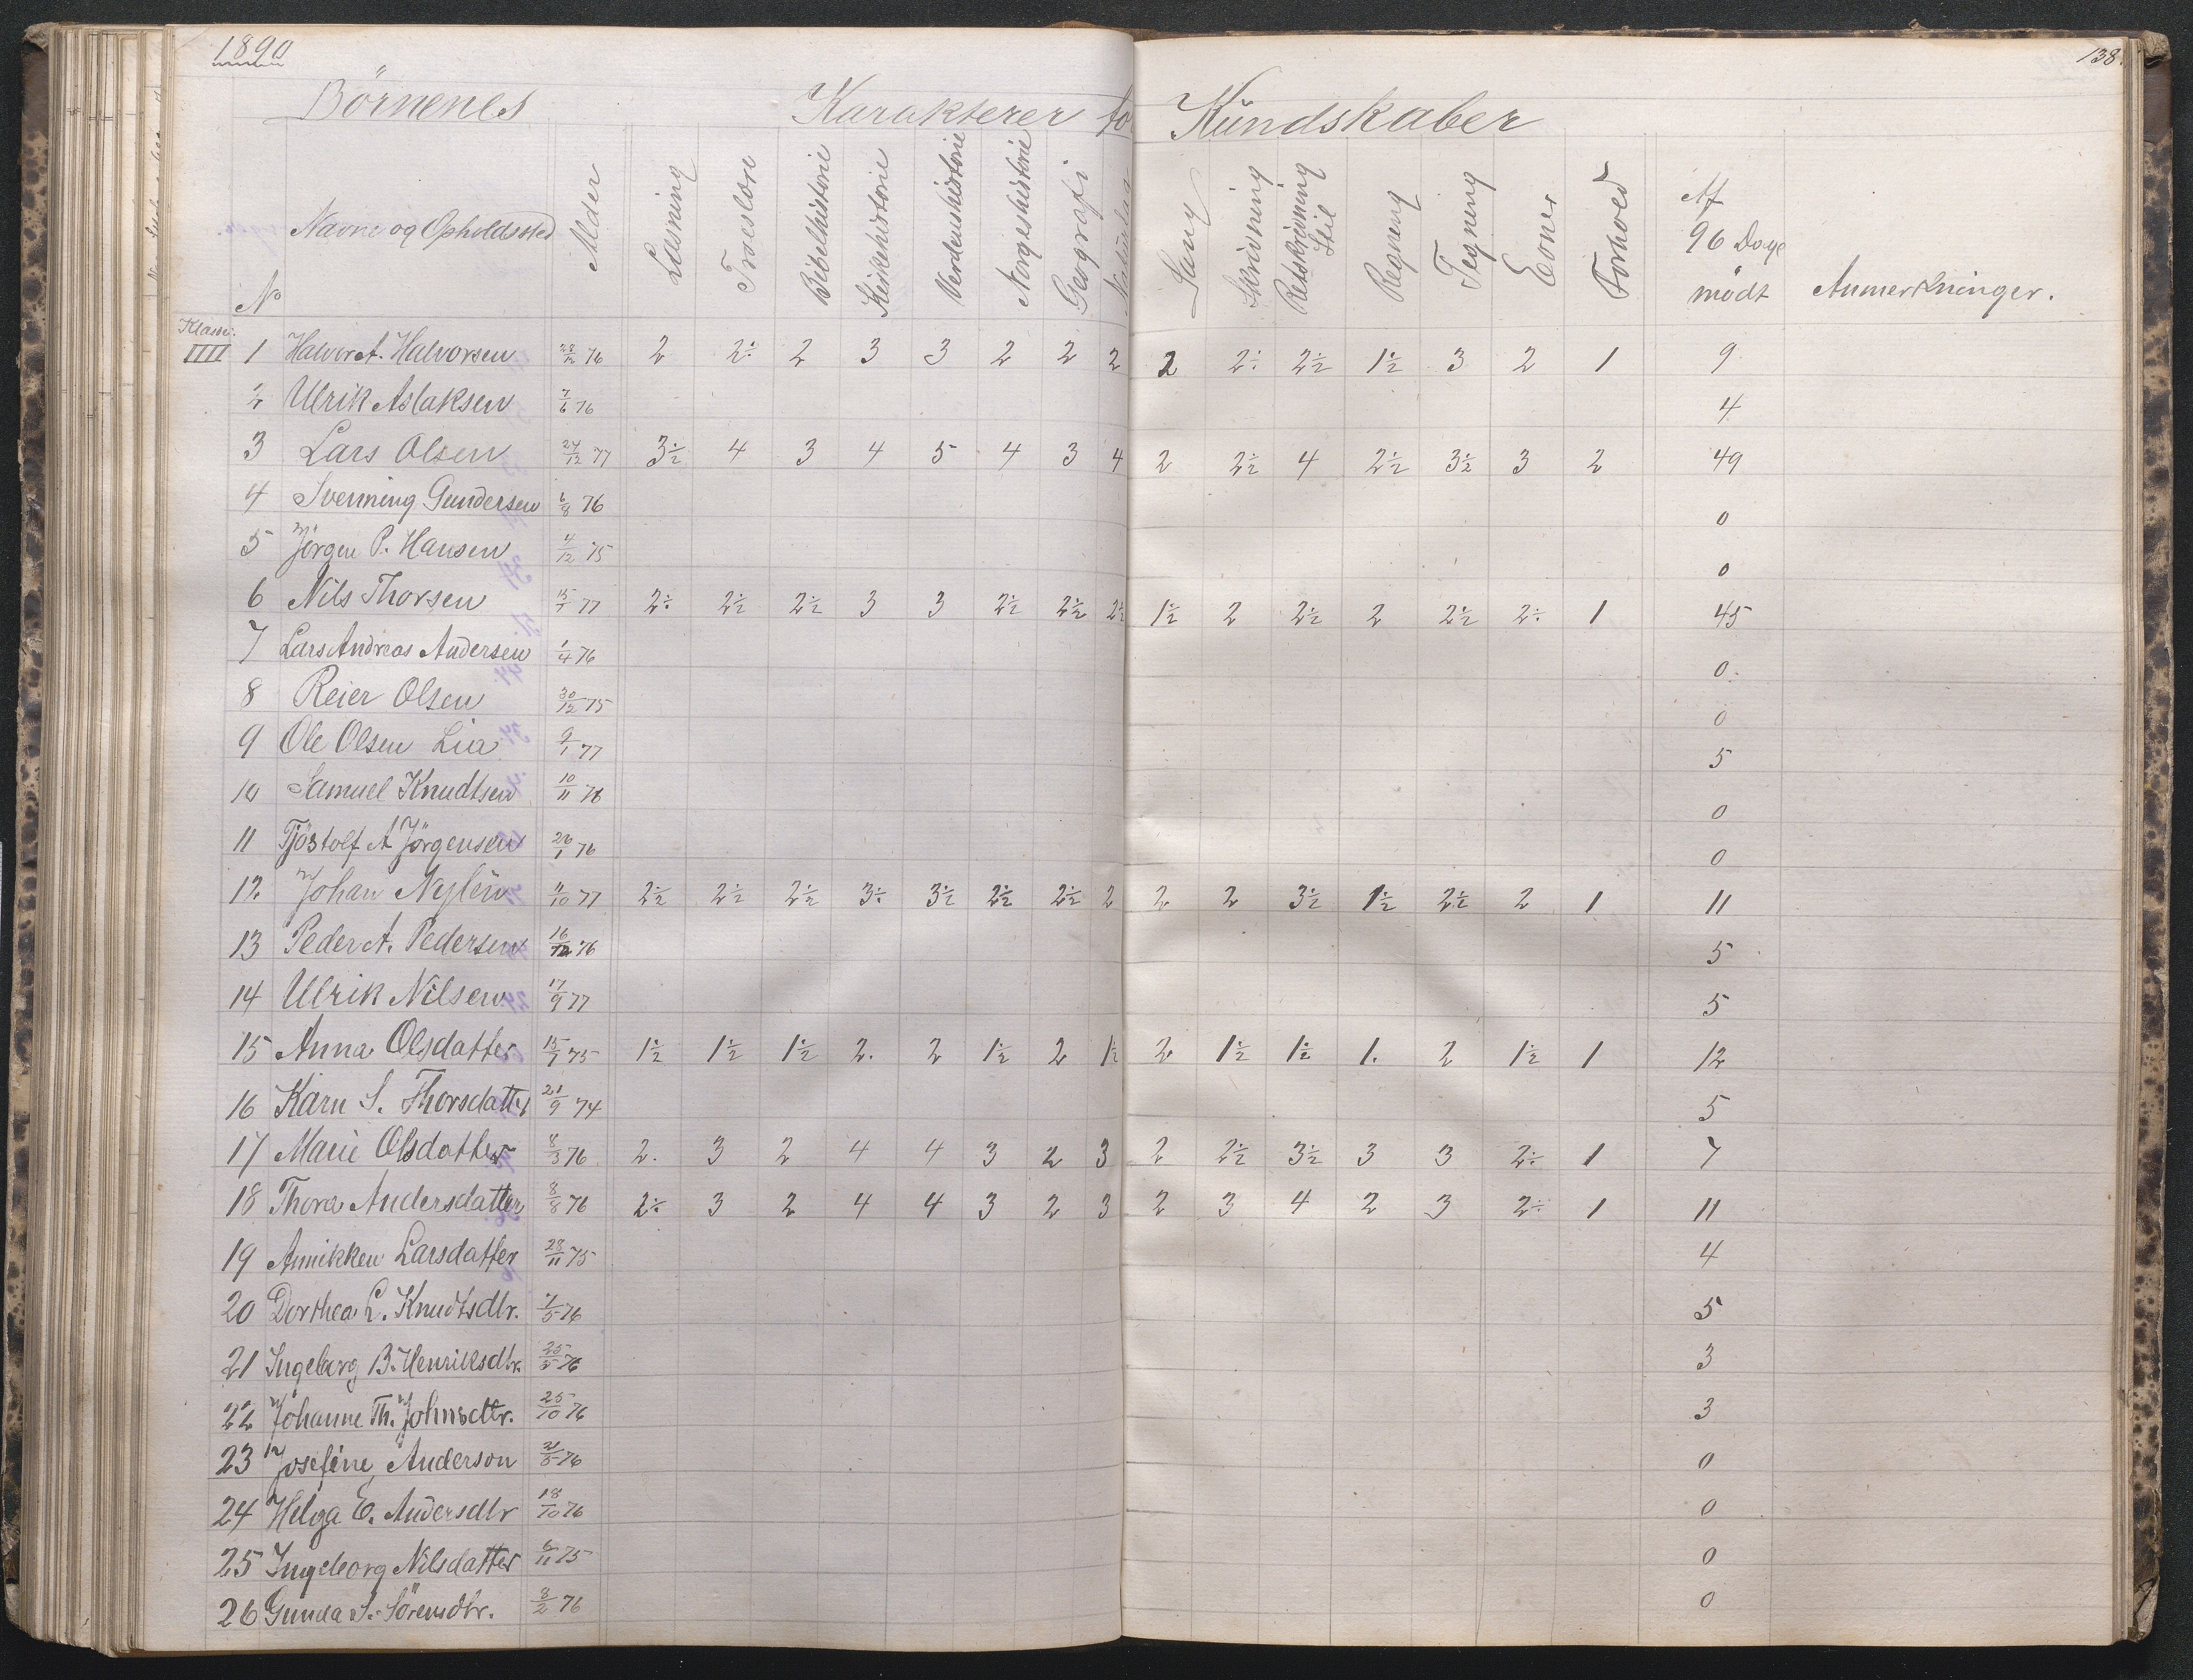 1890
138.
Börnenes Karakterer for Kundskaber
No Navne og Opholdssted Alder Læsning Troeslære Bibelhistorie Kirkehistorie Verdenshistorie Norgeshistorie Geografi Sang Skrivning Retskrivning Stil Regning Tegning Evner Forhold Af 96 Dage mödt Anmerkninger.
Klasse:
IIII 1 Halvor A. Halvorsen 76 2 2÷ 2 3 3 2 2 2 2 2÷ 2½ 1½ 3 2 1 9
2 Ulrik Aslaksen 7/6 76 4
3 Lars Olsen 24/12 77 3½ 4 3 4 5 4 3 4 2 2½ 4 2½ 3½ 3 2 49
4 Svenning Gundersen 6/8 76 0
5 Jörgen P. Hansen 4/12 75 0
6 Nils Thorsen 15/7 77 2÷ 2½ 2½ 3 3 2½ 2½ 2½ 1½ 2 2½ 2 2½ 2÷ 1 45
7 Lars Andreas Andersen 1/4 76 0
8 Reier Olsen 30/12 75 0
9 Ole Olsen Lia 9/1 77 5
10 Samuel Knudtsen 10/11 76 0
11 Tjöstolf A Jörgensen 26/1 76 0
12. Johan Nylén 11/10 77 2½ 2½ 2½ 3÷ 3½ 2½ 2½ 2 2 2 3½ 1½ 2½ 2 1 11
13 Peder A. Pedersen 16/12 76 5
14 Ulrik Nilsen 17/9 77 5
15 Anna Olsdatter 15/7 75 1½ 1½ 1½ 2. 2 1½ 2 1½ 2 1½ 1½ 1. 2 1½ 1 12
16 Karn S. Thorsdatter 21/9 74 5
17 Marie Olsdatter 8/3 76 2. 3 2 4 4 3 2 3 2 2½ 3½ 3 3 2÷ 1 7
18 Thora Andersdatter 8/8 76 2÷ 3 2 4 4 3 2 3 2 3 4 2 3 2÷ 1 11
19 Annikken Larsdatter 28/11 75 4
20 Dorthea L. Knudtsdtr. 76 5
21 Ingeborg B. Henriksdtr. 25/5 76 3
22 Johanne Th. Johnsdtr. 25/10 76 3
23 Josefine Anderson 76 0
24 Helga E. Andersdtr 18/10 76 0
25 Ingeborg Nilsdatter 6/11 75 0
26 Gunda S. Sörensdtr. 8/2 76 0